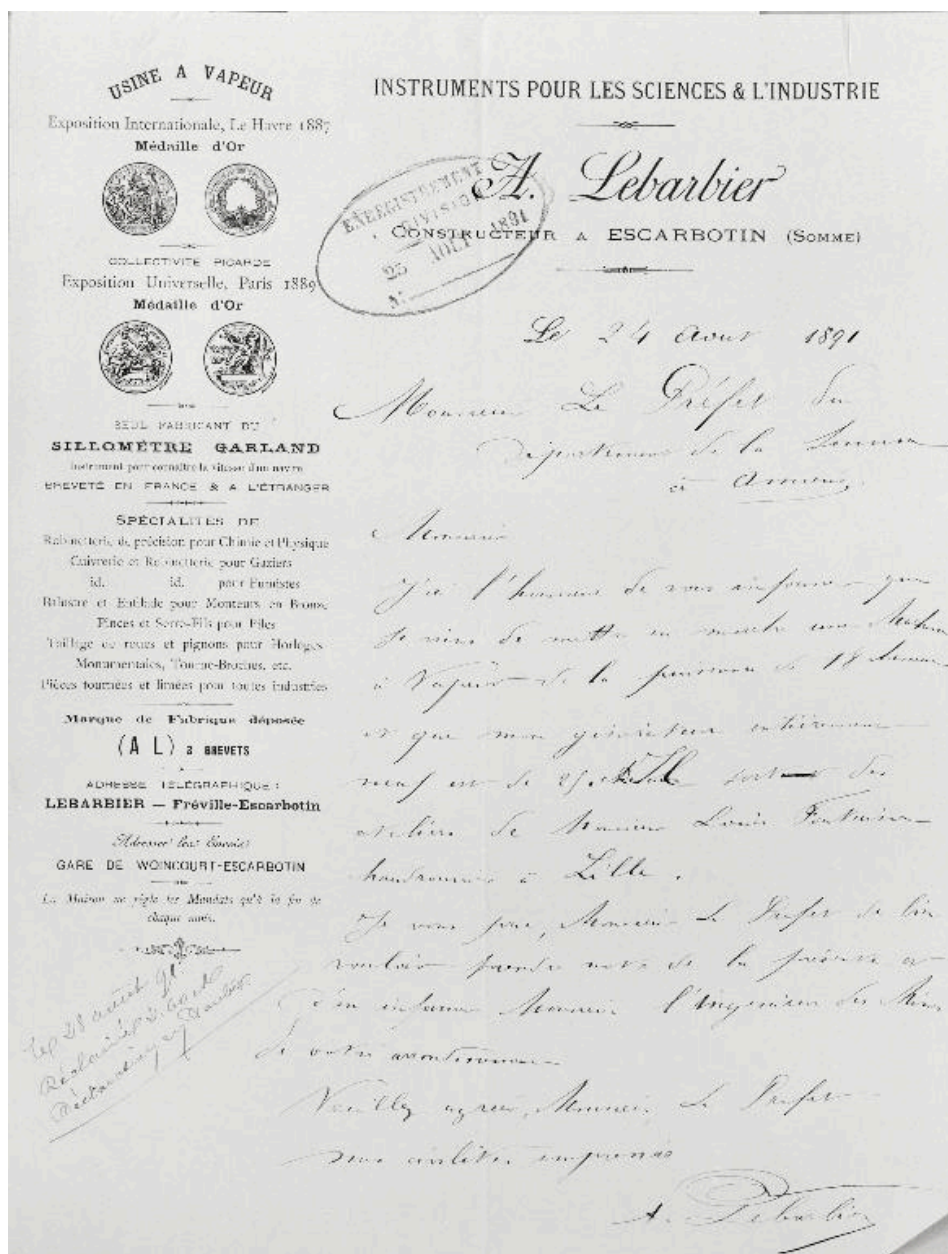 USINE A VAPEUR
Exposition Internationale, Le Havre 1887
Médaille d'Or
COLLECTIVITÉ PICARDE
Exposition Universelle, Paris 1889
Médaille d'Or
SEUL FABRICANT DU
SILLOMÈTRE GARLAND
Instrument pour connaître la vitesse d'un navire
BREVETÉ EN FRANCE & A L'ÉTRANGER
SPÉCIALITÉS DE
Robinetterie de précision pour Chimie et Physique
Cuivrerie et Robinetterie pour Gaziers
id. id. pour Fumistes
Balustre et Enfilade pour Monteurs en Bronze
Pinces et Serre-Fils pour Piles
Taillage de roues et pignons pour Horloges
Monumentales, Tourne-Broches, etc.
Pièces tournées et limées pour toutes industries
Marque de Fabrique déposée
(A L) 2 BREVETS
ADRESSE TÉLÉGRAPHIQUE :
LEBARBIER — Fréville-Escarbotin
Adresser les Envois
GARE DE WOINCOURT-ESCARBOTIN
La Maison ne règle les Mandats qu'à la fin de
chaque mois.
Le 28 août 91
INSTRUMENTS POUR LES SCIENCES & L'INDUSTRIE
A. Lebarbier
CONSTRUCTEUR A ESCARBOTIN (SOMME)
ENREGISTREMENT
DIVISION
25 AOUT 1891
N°
Le 24 Aout 1891
Monsieur Le Préfet du
Département de la Somme
à Amiens
Monsieur
J'ai l'honneur de vous informer que
je viens de mettre en marche une Machine
à Vapeur de la puissance de 18 chevaux
et que mon générateur entièrement
neuf est de 25 sortant des
ateliers de Monsieur Louis Fontaine
chaudronnier à Lille.
Je vous prie, Monsieur Le Préfet de bien
vouloir prendre note de la présente et
d'en informer Monsieur l'Ingénieur des Mines
de votre arrondissement
Veuillez agréer, Monsieur Le Préfet
mes civilités empressées
A. Lebarbier